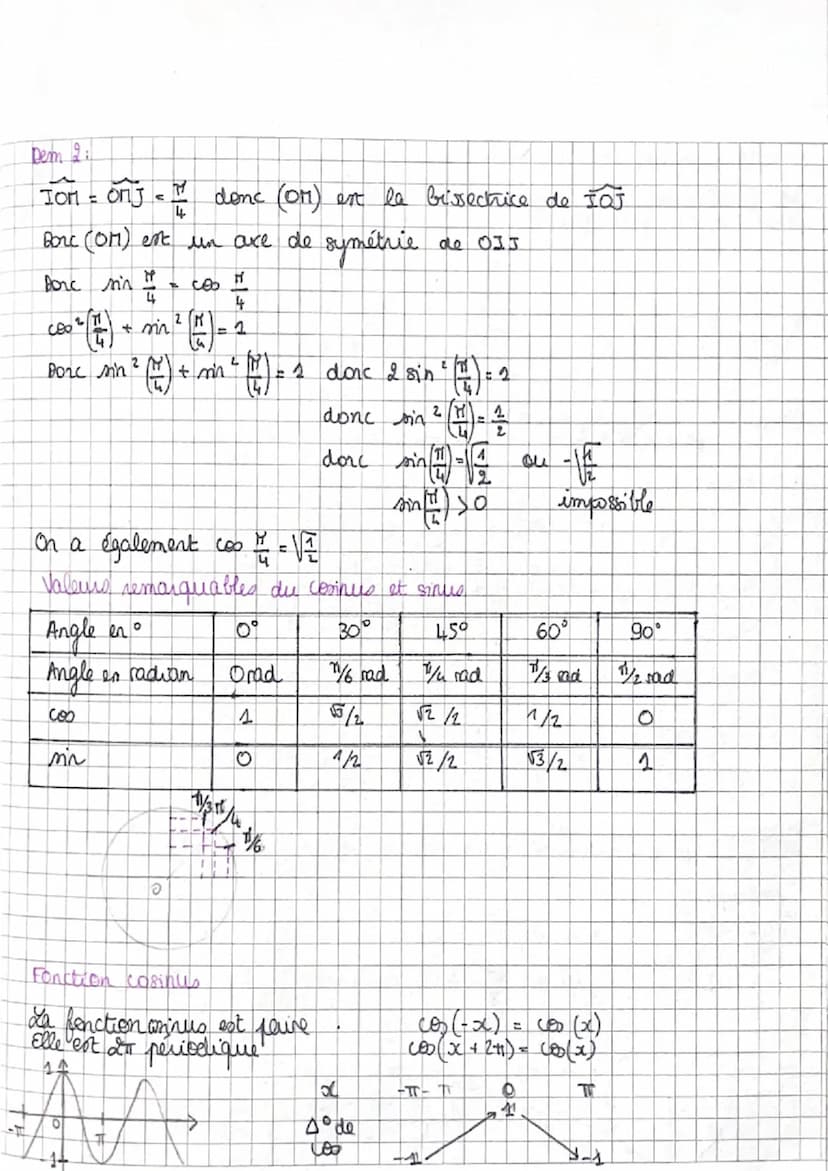 Dem 2:
IOM = OMJ = π/4 donc (OM) est la bissectrice de IOJ
Donc (OM) est un axe de symétrie de OIJ
Donc sin π/4 = cos π/4
cos²(π/4) + sin²(π/4) = 1
Donc sin²(π/4) + sin²(π/4) = 1 donc 2 sin²(π/4) = 1
donc sin²(π/4) = 1/2
donc sin(π/4) = √(1/2) ou -√(1/2)
sin(π/4) > 0 impossible
On a également cos π/4 = √(1/2)
Valeurs remarquables du cosinus et sinus
Angle en ° 0° 30° 45° 60° 90°
Angle en radian 0 rad π/6 rad π/4 rad π/3 rad π/2 rad
cos 1 √3/2 √2/2 1/2 0
sin 0 1/2 √2/2 √3/2 1
π/3 π/4
π/6
O
Fonction cosinus
La fonction cosinus est paire. cos(-x) = cos(x)
Elle est 2π périodique cos(x + 2π) = cos(x)
1
-π 0 π
-1
x -π - π 0 π
Δ° de cos -1 1 -1